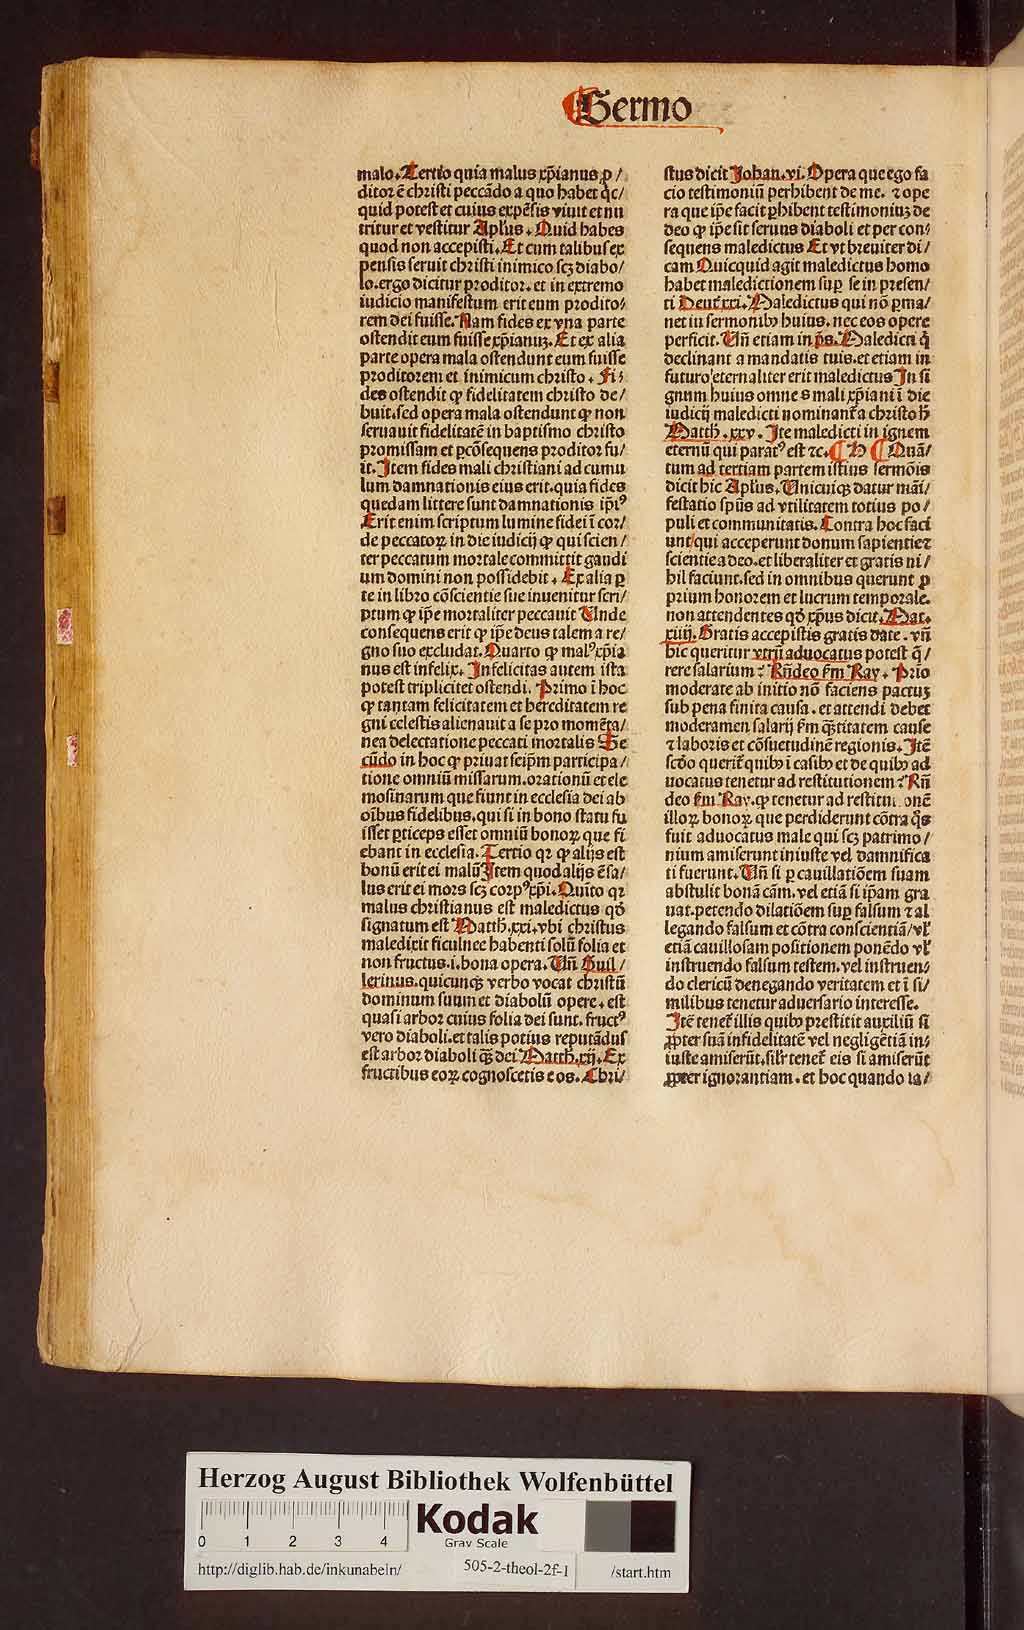 Sermo
malo. Tertio quia malus xp̄ianus ꝓ/
ditor ē christi peccādo a quo habet qc̄/
quid potest et cuius expēsis viuit et nu
tritur et vestitur Apl̓us. Quid habes
quod non accepisti. Et cum talibus ex
pensis seruit christi inimico scꝫ diabo/
lo. ergo dicitur proditor. et in extremo
iudicio manifestum erit eum prodito/
rem dei fuisse. Nam fides ex vna parte
ostendit eum fuisse xp̄ianuꝫ. Et ex alia
parte opera mala ostendunt eum fuisse
proditorem et inimicum christo. Fi/
des ostendit ꝙ fidelitatem christo de/
buit. sed opera mala ostendunt ꝙ non
seruauit fidelitatē in baptismo christo
promissam et ꝑcōsequens proditor fu/
it. Item fides mali christiani ad cumu
lum damnationis eius erit. quia fides
quedam littere sunt damnationis ip̄iꝰ
Erit enim scriptum lumine fidei ī cor/
de peccatoꝝ in die iudicij ꝙ qui scien/
ter peccatum mortale committit gaudi
um domini non possidebit. Ex alia ꝑ
te in libro cōscientie sue inuenitur scri/
ptum ꝙ ip̄e mortaliter peccauit Unde
consequens erit ꝙ ip̄e deus talem a re/
gno suo excludat. Quarto ꝙ malꝰ xp̄ia
nus est infelix. Infelicitas autem ista
potest tripliciter ostendi. Primo ī hoc
ꝙ tantam felicitatem et hereditatem re
gni celestis alienauit a se pro momēta/
nea delectatione peccati mortalis Se
cūdo in hoc ꝙ priuat seip̄m participa/
tione omniū missarum. orationū et ele
mosinarum que fiunt in ecclesia dei ab
oībus fidelibus. qui si in bono statu fu
isset ꝑticeps esset omniū bonoꝝ que fi
ebant in ecclesia. Tertio qꝛ ꝙ alijs est
bonū erit ei malū Item quod alijs ē sa/
lus erit ei mors scꝫ corpꝰ xp̄i. Quito qꝛ
malus christianus est maledictus qd̓
signatum est Matth. xxi. vbi christus
maledixit ficulnee habenti solū folia et
non fructus. i. bona opera. Un̄ Guil/
lerinus. quicunqꝫ verbo vocat christū
dominum suum et diabolū opere. est
quasi arbor cuius folia dei sunt. fructꝰ
vero diaboli. et talis potius reputādus
est arbor diaboli qꝫ dei Matth. xij. Ex
fructibus eoꝝ cognoscetis eos. Chri/
stus dicit Johan. vi. Opera que ego fa
cio testimoniū perhibent de me. ⁊ ope
ra que ip̄e facit ꝑhibent testimoniuꝫ de
deo ꝙ ip̄e sit seruus diaboli et per con/
sequens maledictus Et vt breuiter di/
cam Quicquid agit maledictus homo
habet maledictionem suꝑ se in presen/
ti Deut̓ xxi. Maledictus qui nō ꝑma/
net iu sermonibꝫ huius. nec eos opere
perficit. Un̄ etiam in ps̄. Maledicti q̄
declinant a mandatis tuis. et etiam in
futuro eternaliter erit maledictus In si
gnum huius omnes mali xp̄iani ī die
iudicij maledicti nominant̓ a christo
Matth. xxv. Ite maledicti in ignem
eternū qui paratꝰ est ⁊c. ¶ H ¶ Quā/
tum ad tertiam partem istius sermōis
dicit hic Apl̓us. Unicuiqꝫ datur māi/
festatio sp̄us ad vtilitatem totius po/
puli et communitatis. Contra hoc faci
unt qui acceperunt donum sapientie ⁊
scientie a deo. et liberaliter et gratis ni/
hil faciunt. sed in omnibus querunt ꝓ
prium honorem et lucrum temporale.
non attendentes qd̓ xp̄us dicit. Mat.
xiiij. Gratis accepistis gratis date. vn̄
hic queritur vtrū aduocatus potest q̄/
rere salarium? Rn̄deo s̄m Ray. Prio
moderate ab initio nō faciens pactuꝫ
sub pena finita causa. et attendi debet
moderamen salarij s̄m qꝫtitatem cause
⁊ laboris et cōsuetudinē regionis. Itē
scd̓o querit̓ quibꝫ ī casibꝫ et de quibꝫ ad
uocatus tenetur ad restitutionem? Rn̄
deo s̄m Ray. ꝙ tenetur ad restituionē
illoꝝ bonoꝝ que perdiderunt cōtra q̄s
fuit aduocatus male qui scꝫ patrimo/
nium amiserunt iniuste vel damnifica
ti fuerunt. Un̄ si ꝑ cauillatiōem suam
abstulit bonā cām. vel etiā si ip̄am gra
uat. petendo dilatiōem suꝑ falsum ⁊ al
legando falsum et cōtra conscientiā/ vl̓
etiā cauillosam positionem ponēdo vl̓
instruendo falsum testem. vel instruen/
do clericū denegando veritatem et ī si/
milibus tenetur aduersario interesse.
Itē tenet̓ illis quibꝫ prestitit auxiliū si
ꝓpter suā infidelitatē vel negligētiā in/
iuste amiserūt. sil̓r tenet̓ eis si amiserūt
ꝓpter ignorantiam. et hoc quando ia/
Herzog August Bibliothek Wolfenbüttel
0 1 2 3 4
Kodak
Gray Scale
http://diglib.hab.de/inkunabeln/ 505-2-theol-2f-1 /start.htm